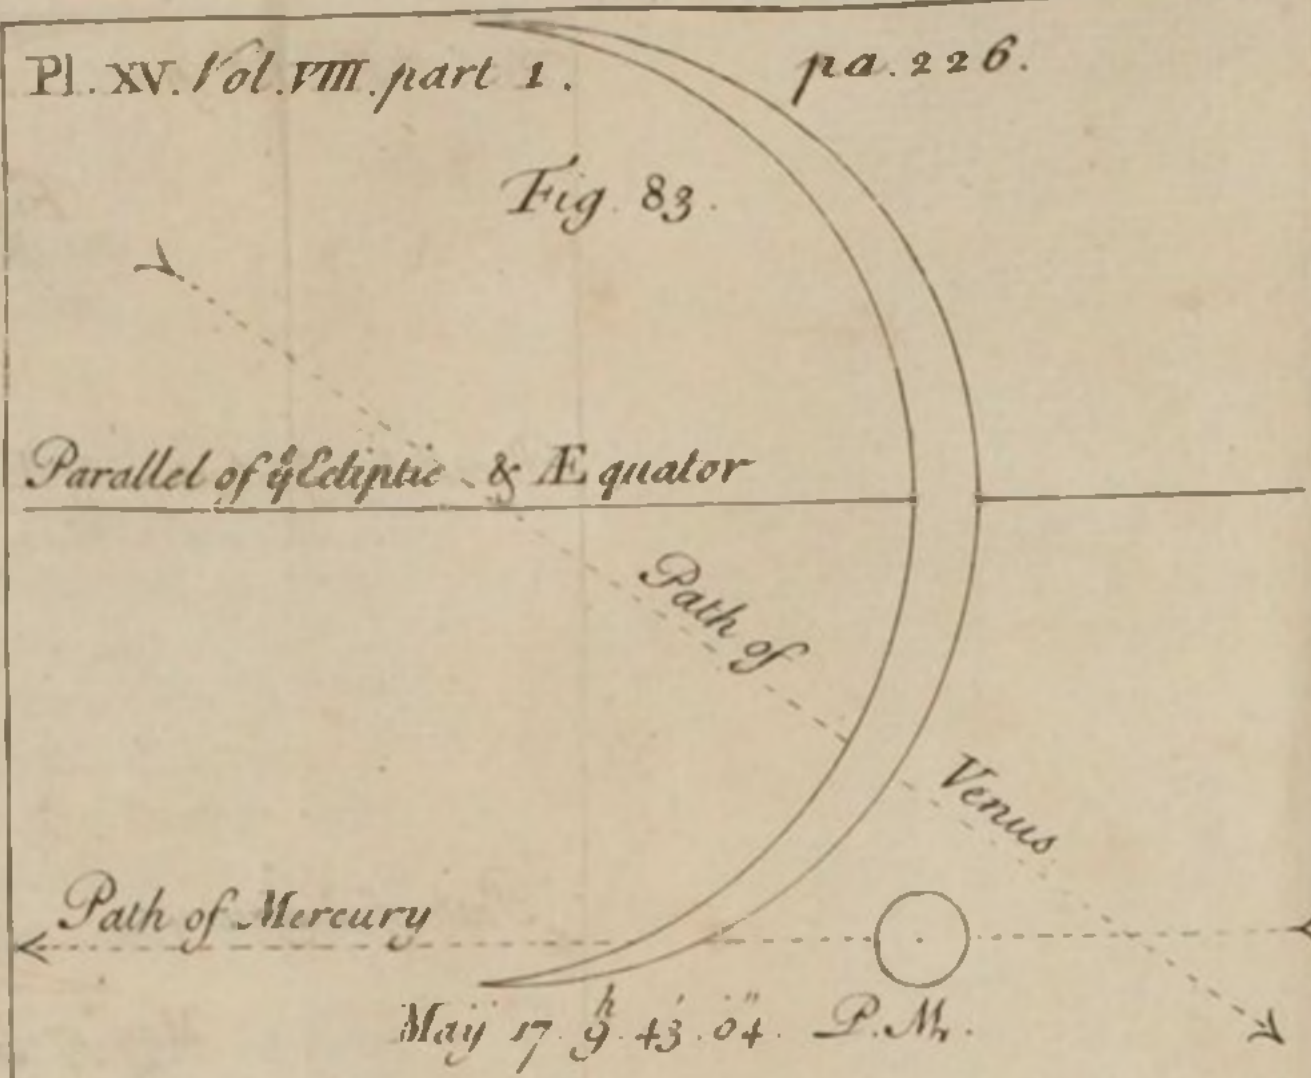 Pl. XV. Vol. VIII. part 1.
pa. 226.
Fig. 83.
Parallel of yͤ Ecliptic & Æquator
Path of Venus
Path of Mercury
Maij 17. 9ʰ. 43′. 04″. P.M.